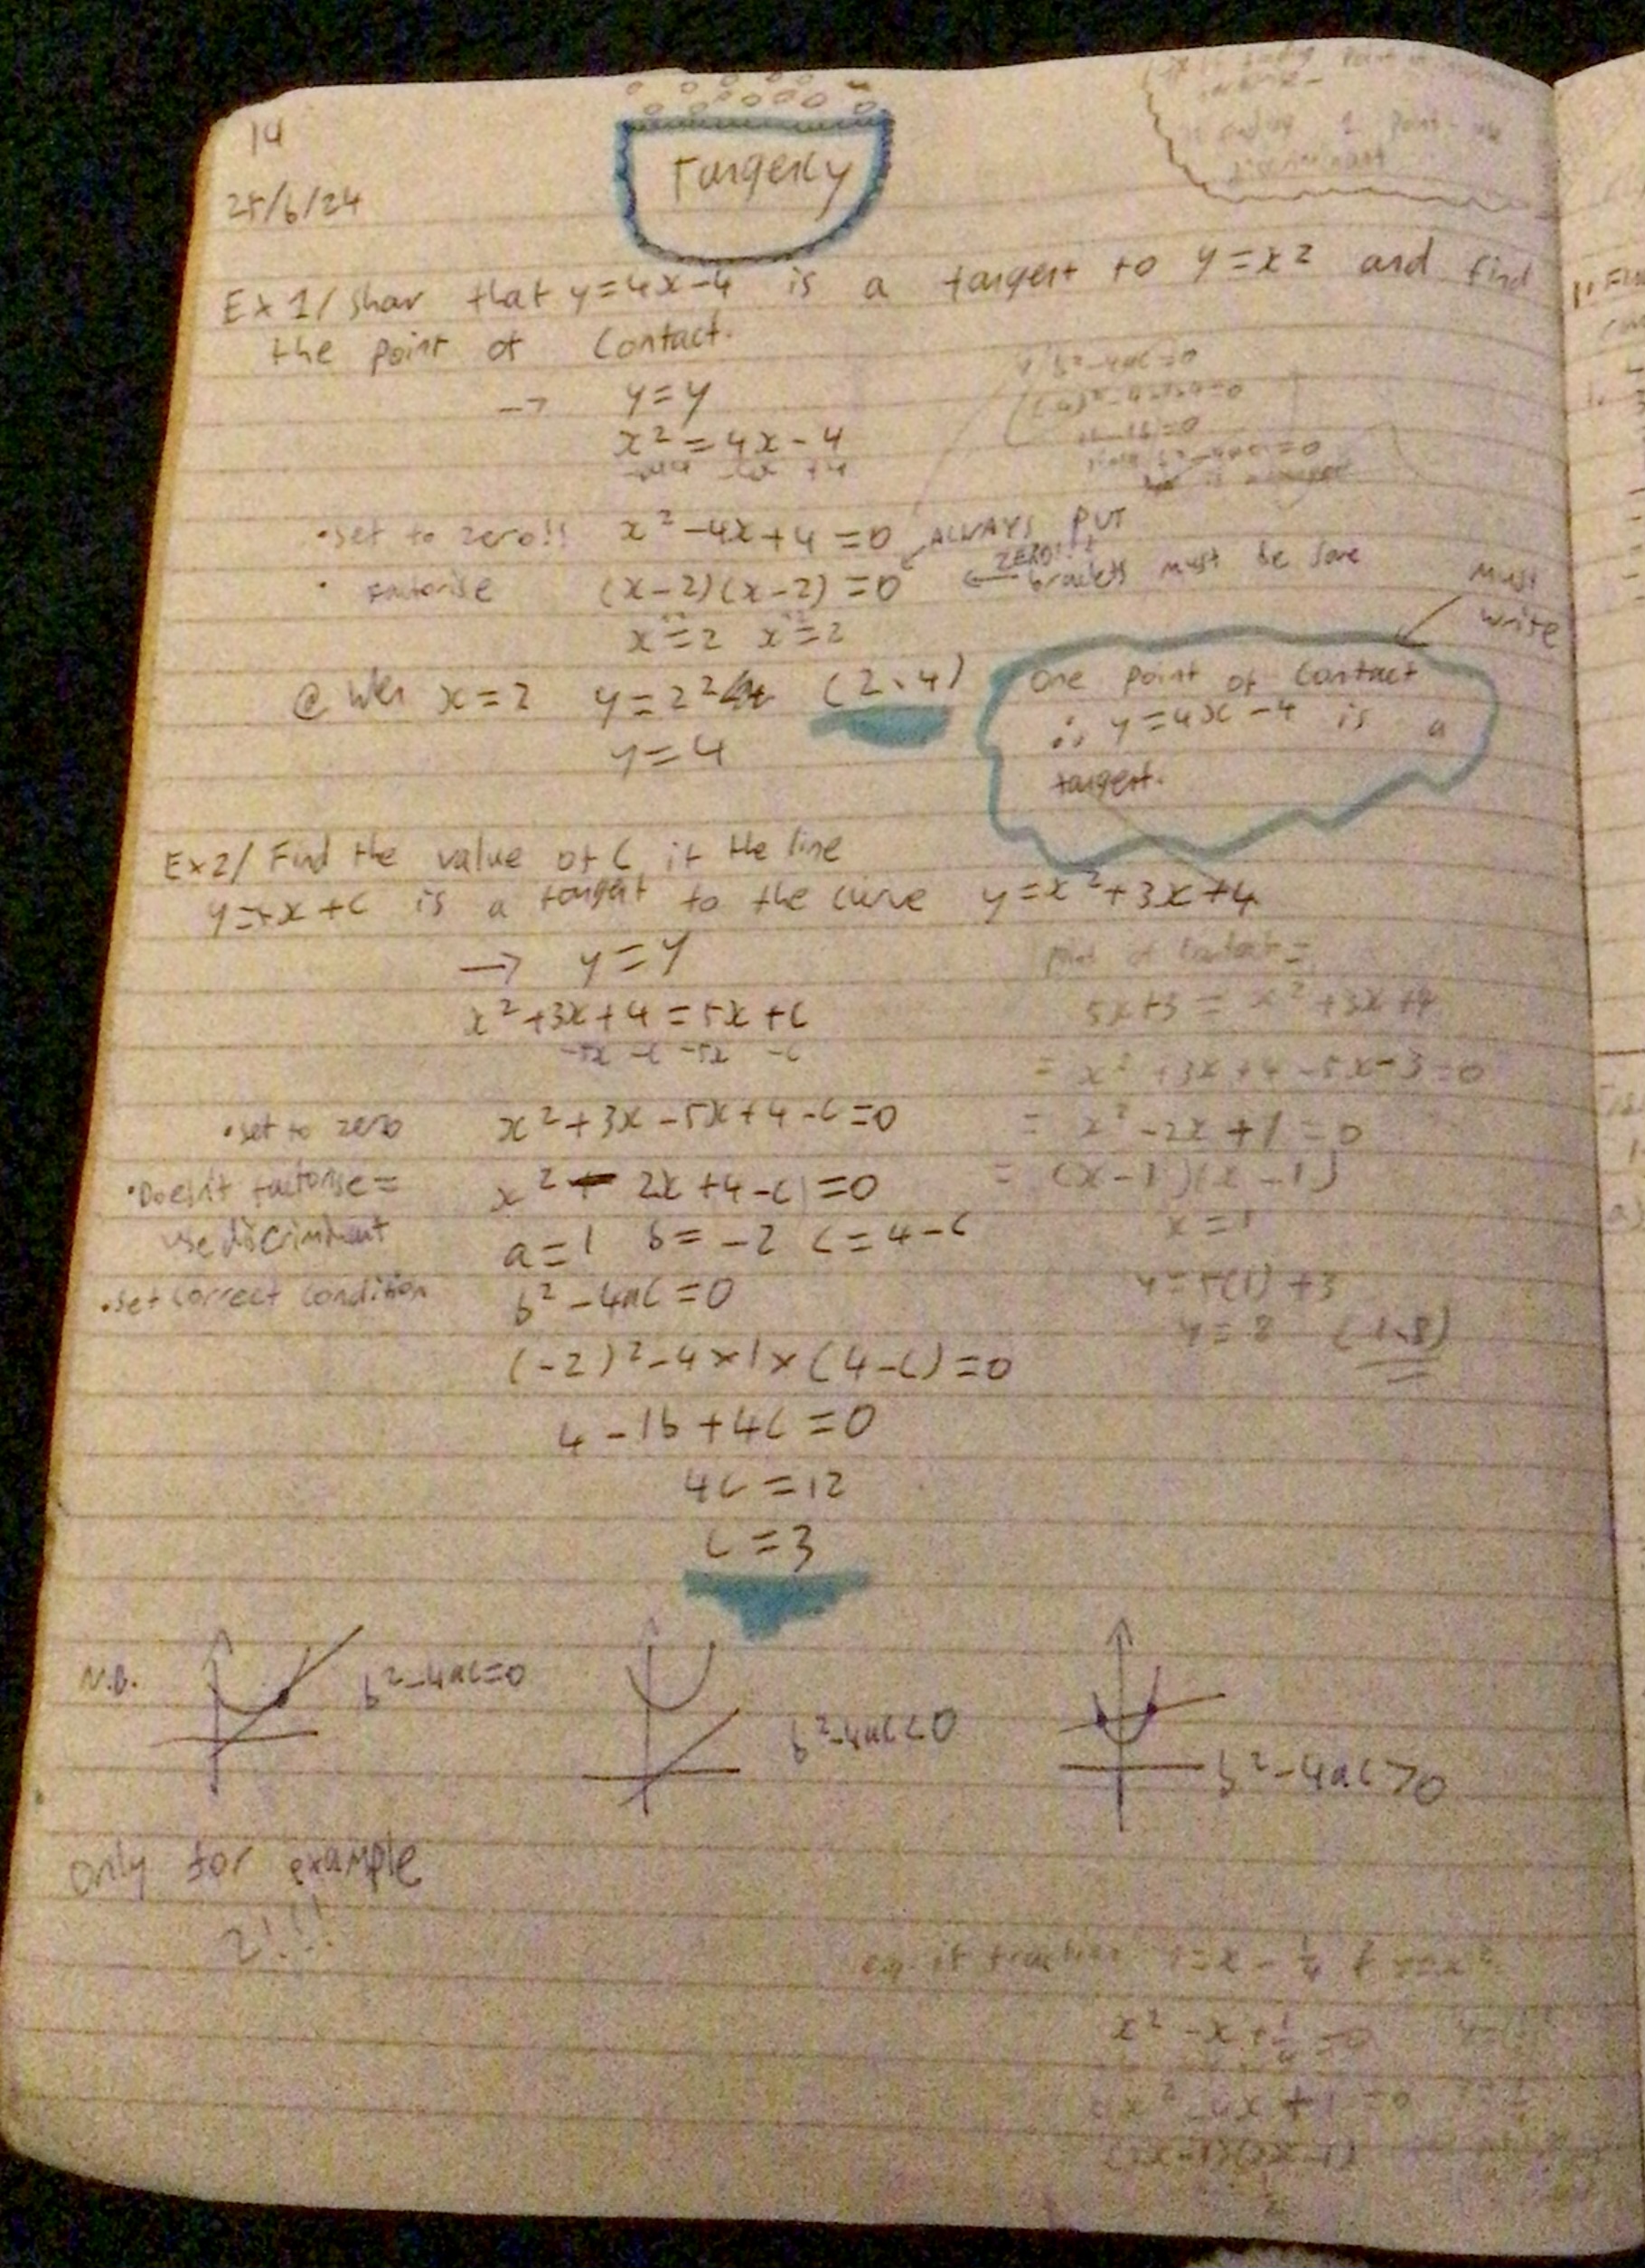 14
25/6/24
Tangency
finding point
finding 1 point - use
discriminant
Ex 1/ Show that y=4x-4 is a tangent to y=x² and find
the point of contact.
→ y=y
x² = 4x-4
b²-4ac=0
16-16=0
b²-4ac=0
is a tangent
•set to zero!! x²-4x+4=0 ALWAYS PUT
ZERO!!
• factorise (x-2)(x-2)=0 ← brackets must be same
x=2 x=2
must
write
@ when x=2 y=2² (2,4)
y=4
One point of contact
∴ y=4x-4 is a
tangent.
Ex2/ Find the value of C if the line
y=5x+c is a tangent to the curve y=x²+3x+4
→ y=y
x²+3x+4=5x+c
-5x -c -5x -c
•set to zero x²+3x-5x+4-c=0
•Doesn't factorise= x²-2x+4-c=0
use discriminant a=1 b=-2 c=4-c
•set correct condition b²-4ac=0
(-2)²-4×1×(4-c)=0
4-16+4c=0
4c=12
c=3
point of contact=
5x+3 = x²+3x+4
= x²+3x+4-5x-3=0
= x²-2x+1=0
= (x-1)(x-1)
x=1
y=5(1)+3
y=8 (1,8)
N.B. b²-4ac=0 b²-4ac<0 b²-4ac>0
Only for example
2!!!
e.g. if fraction y=x-¼ & y=x²
x²-x+¼=0
4x²-4x+1=0
(2x-1)(2x-1)